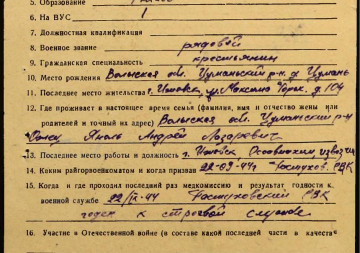 5. Образование
6. На ВУС 1
7. Должностная квалификация
8. Военное звание рядовой
9. Гражданская специальность крестьянин
10. Место рождения Волынская обл. Цуманьский р-н д Цумань
11. Последнее место жительства г. ул. Максима Горьк. д 104
12. Где проживает в настоящее время семья (фамилия, имя и отчество жены или
родителей и точный их адрес) Волынская обл. Цуманьский р-н
Андрей
13. Последнее место работы и должность г.
14. Каким райгорвоенкоматом и когда призван 22-09-44г РВК
15. Когда и где проходил последний раз медкомиссию и результат годности к
военной службе 22/IX-44 РВК
годен к строевой службе
16. Участие в Отечественной войне (в составе какой последней части и в качестве